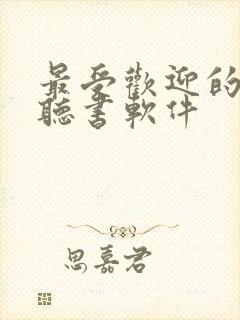 最受歡迎的
聽書軟件
思嘉君